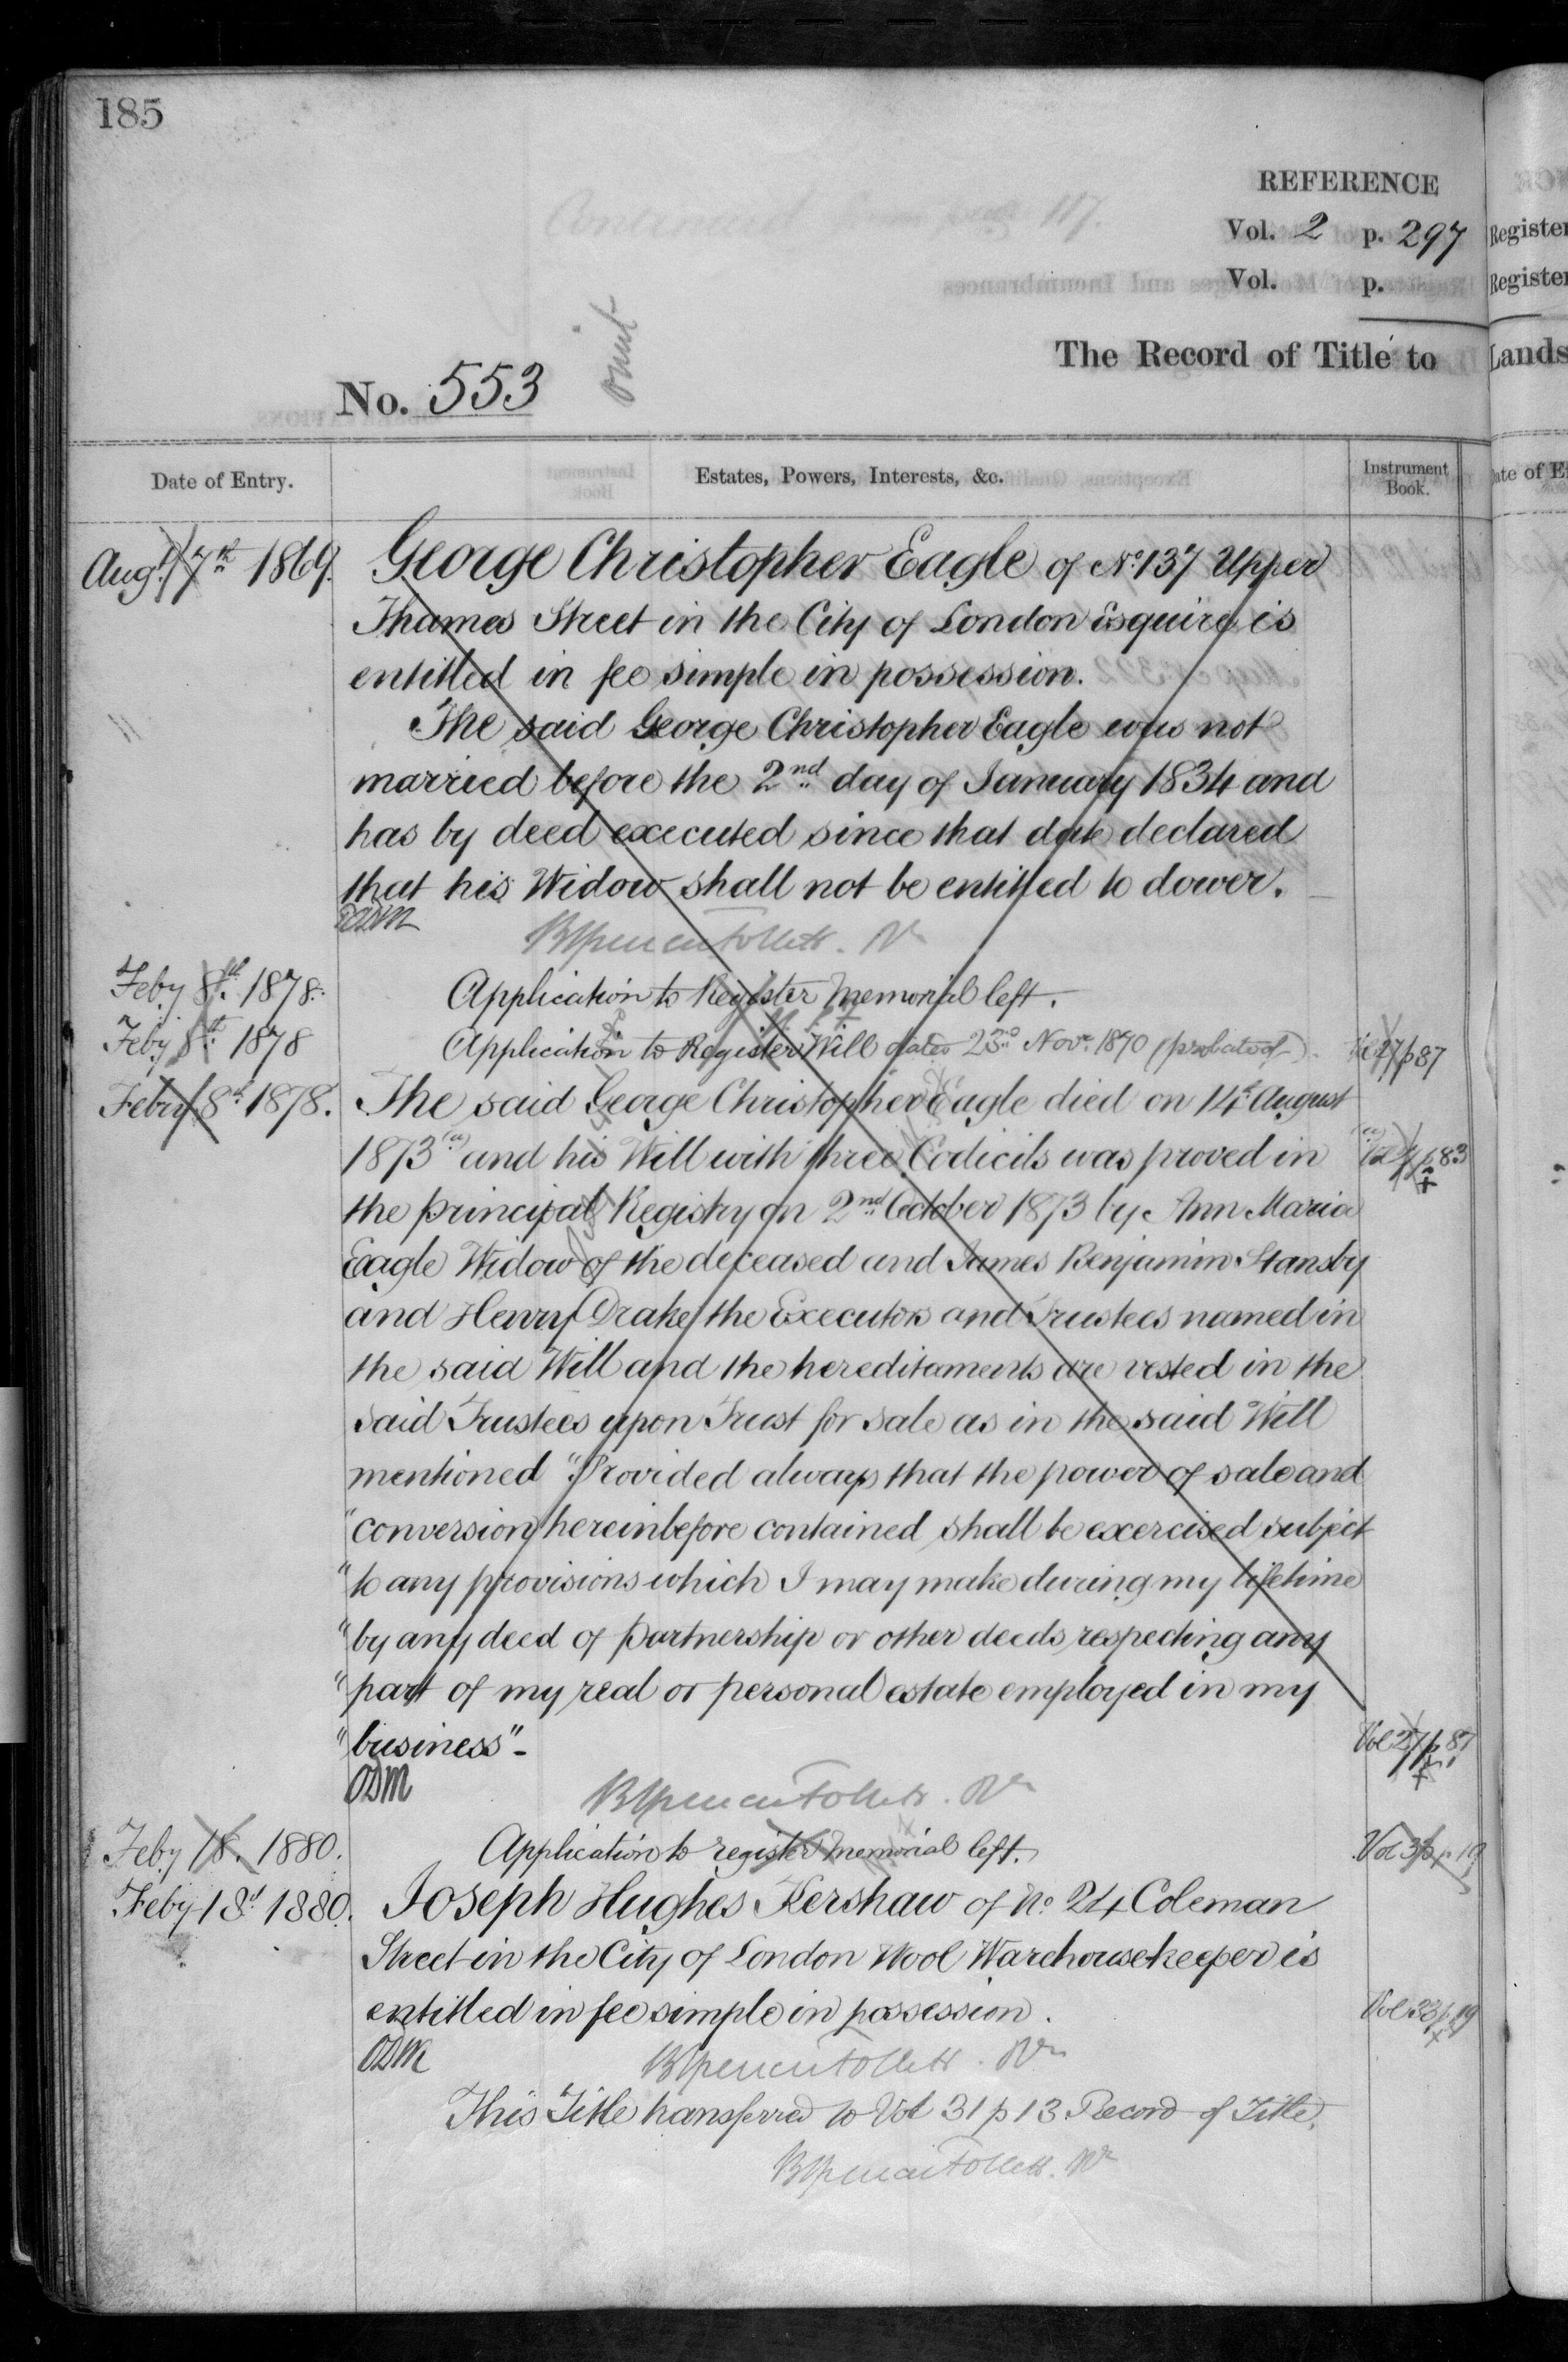 185
REFERENCE
Vol. 2 p. 297
Vol. p.
The Record of Title to
No. 553
omit
Date of Entry.
Estates, Powers, Interests, &c.
Instrument Book.
Augt. 17th 1869.
George Christopher Eagle of No. 137 Upper
Thames Street in the City of London Esquire is
entitled in fee simple in possession.
The said George Christopher Eagle was not
married before the 2nd day of January 1834 and
has by deed executed since that date declared
that his Widow shall not be entitled to dower.
Feby 8th. 1878.
Application to Register Memorial left.
Feby 8th. 1878
Application to Register Will dated 23rd Novr. 1870 (probate of).
Vol 27 p 87
Feby 8th 1878.
The said George Christopher Eagle died on 14th August
1873 (a) and his Will with three Codicils was proved in
(a)
p 83
the principal Registry on 2nd October 1873 by Ann Maria
Eagle Widow of the deceased and James Benjamin Stansby
and Henry Drake the Executors and Trustees named in
the said Will and the hereditaments are vested in the
said Trustees upon Trust for sale as in the said Will
mentioned "Provided always that the power of sale and
"conversion hereinbefore contained shall be exercised subject
"to any provisions which I may make during my lifetime
"by any deed of partnership or other deeds respecting any
"part of my real or personal estate employed in my
"business"-
Vol 27 p 87
ODM
Feby 18. 1880.
Application to register memorial left.
Vol 33 p. 19
Feby 18th 1880.
Joseph Hughes Kershaw of No. 24 Coleman
Street in the City of London Wool Warehousekeeper is
entitled in fee simple in possession.
Vol 33 p 19
ODM
This Title transferred to Vol 31 p 13 Record of Title.
Register
Register
Lands